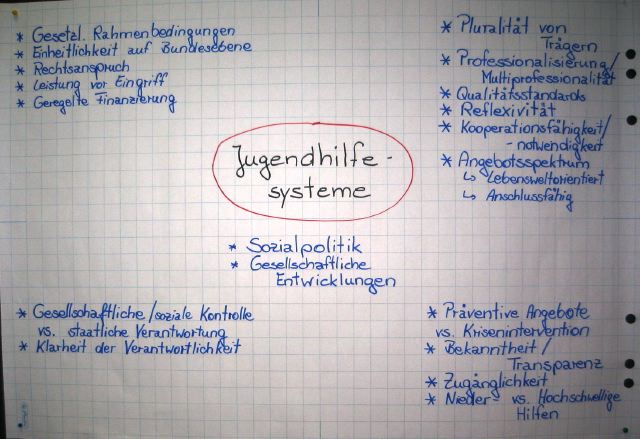 * Gesetzl. Rahmenbedingungen
* Einheitlichkeit auf Bundesebene
* Rechtsanspruch
* Leistung vor Eingriff
* Geregelte Finanzierung
* Pluralität von
Trägern
* Professionalisierung/
Multiprofessionalität
* Qualitätsstandards
* Reflexivität
* Kooperationsfähigkeit/
-notwendigkeit
* Angebotsspektrum
↳ Lebensweltorientiert
↳ Anschlussfähig
Jugendhilfe-
systeme
* Sozialpolitik
* Gesellschaftliche
Entwicklungen
* Gesellschaftliche/soziale Kontrolle
vs. staatliche Verantwortung
* Klarheit der Verantwortlichkeit
* Präventive Angebote
vs. Krisenintervention
* Bekanntheit/
Transparenz
* Zugänglichkeit
* Nieder- vs. Hochschwellige
Hilfen